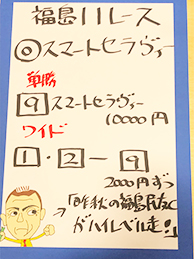 福島11レース
◎スマートセラヴィー
単勝
9 スマートセラヴィー
10000円
ワイド
1・2－9
2000円ずつ
「昨秋の福島民友C
がハイレベル走!!」